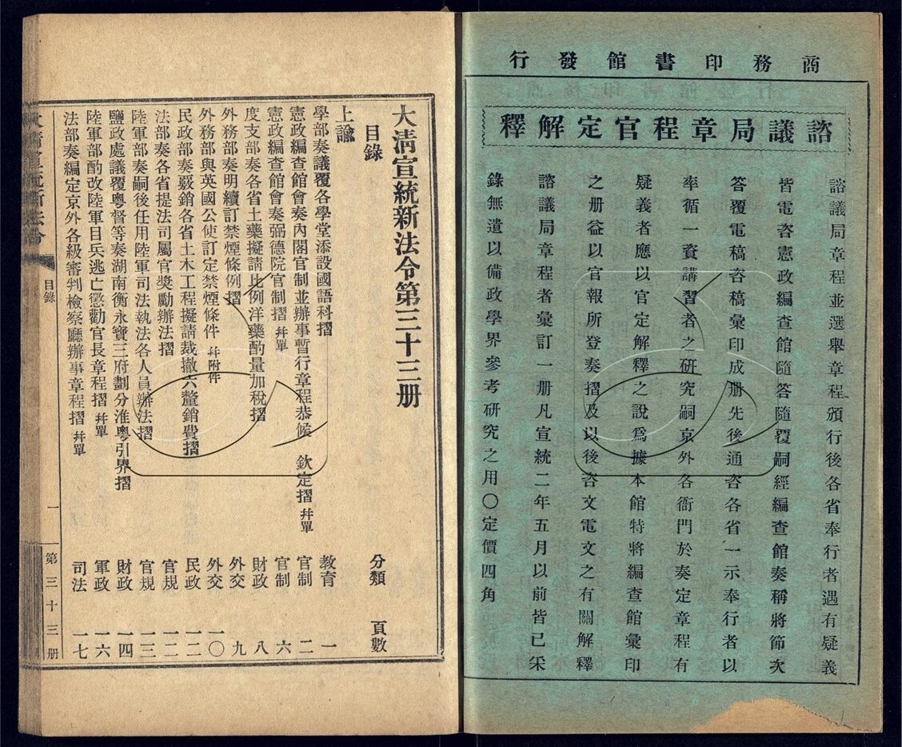 商務印書館發行
諮議局章程官定解釋
諮議局章程並選舉章程頒行後各省奉行者遇有疑義
皆電咨憲政編查館隨答隨覆嗣經編查館奏稱將節次
答覆電稿咨稿彙印成册先後通咨各省一示奉行者以
率循一資講習者之研究嗣京外各衙門於奏定章程有
疑義者應以官定解釋之說爲據本館特將編查館彙印
之册益以官報所登奏摺及以後咨文電文之有關解釋
諮議局章程者彙訂一册凡宣統二年五月以前皆已采
錄無遺以備政學界參考研究之用〇定價四角
大淸宣統新法令第三十三册
目錄 分類 頁數
上諭
學部奏議覆各學堂添設國語科摺 教育 一
憲政編查館會奏內閣官制並辦事暫行章程恭候 欽定摺 幷單 官制 二
憲政編查館會奏弼德院官制摺 幷單 官制 六
度支部奏各省土藥擬請比例洋藥酌量加稅摺 財政 八
外務部奏明續訂禁煙條例摺 外交 九
外務部與英國公使訂定禁煙條件 幷附件 外交 一〇
民政部奏覈銷各省土木工程擬請裁撤六釐銷費摺 民政 一二
法部奏各省提法司屬官獎勵辦法摺 官規 一二
陸軍部奏嗣後任用陸軍司法執法各人員辦法摺 官規 一三
鹽政處議覆粵督等奏湖南衡永寶三府劃分淮粵引界摺 財政 一四
陸軍部酌改陸軍目兵逃亡懲勸官長章程摺 幷單 軍政 一六
法部奏編定京外各級審判檢察廳辦事章程摺 幷單 司法 一七
目錄 一 第三十三册